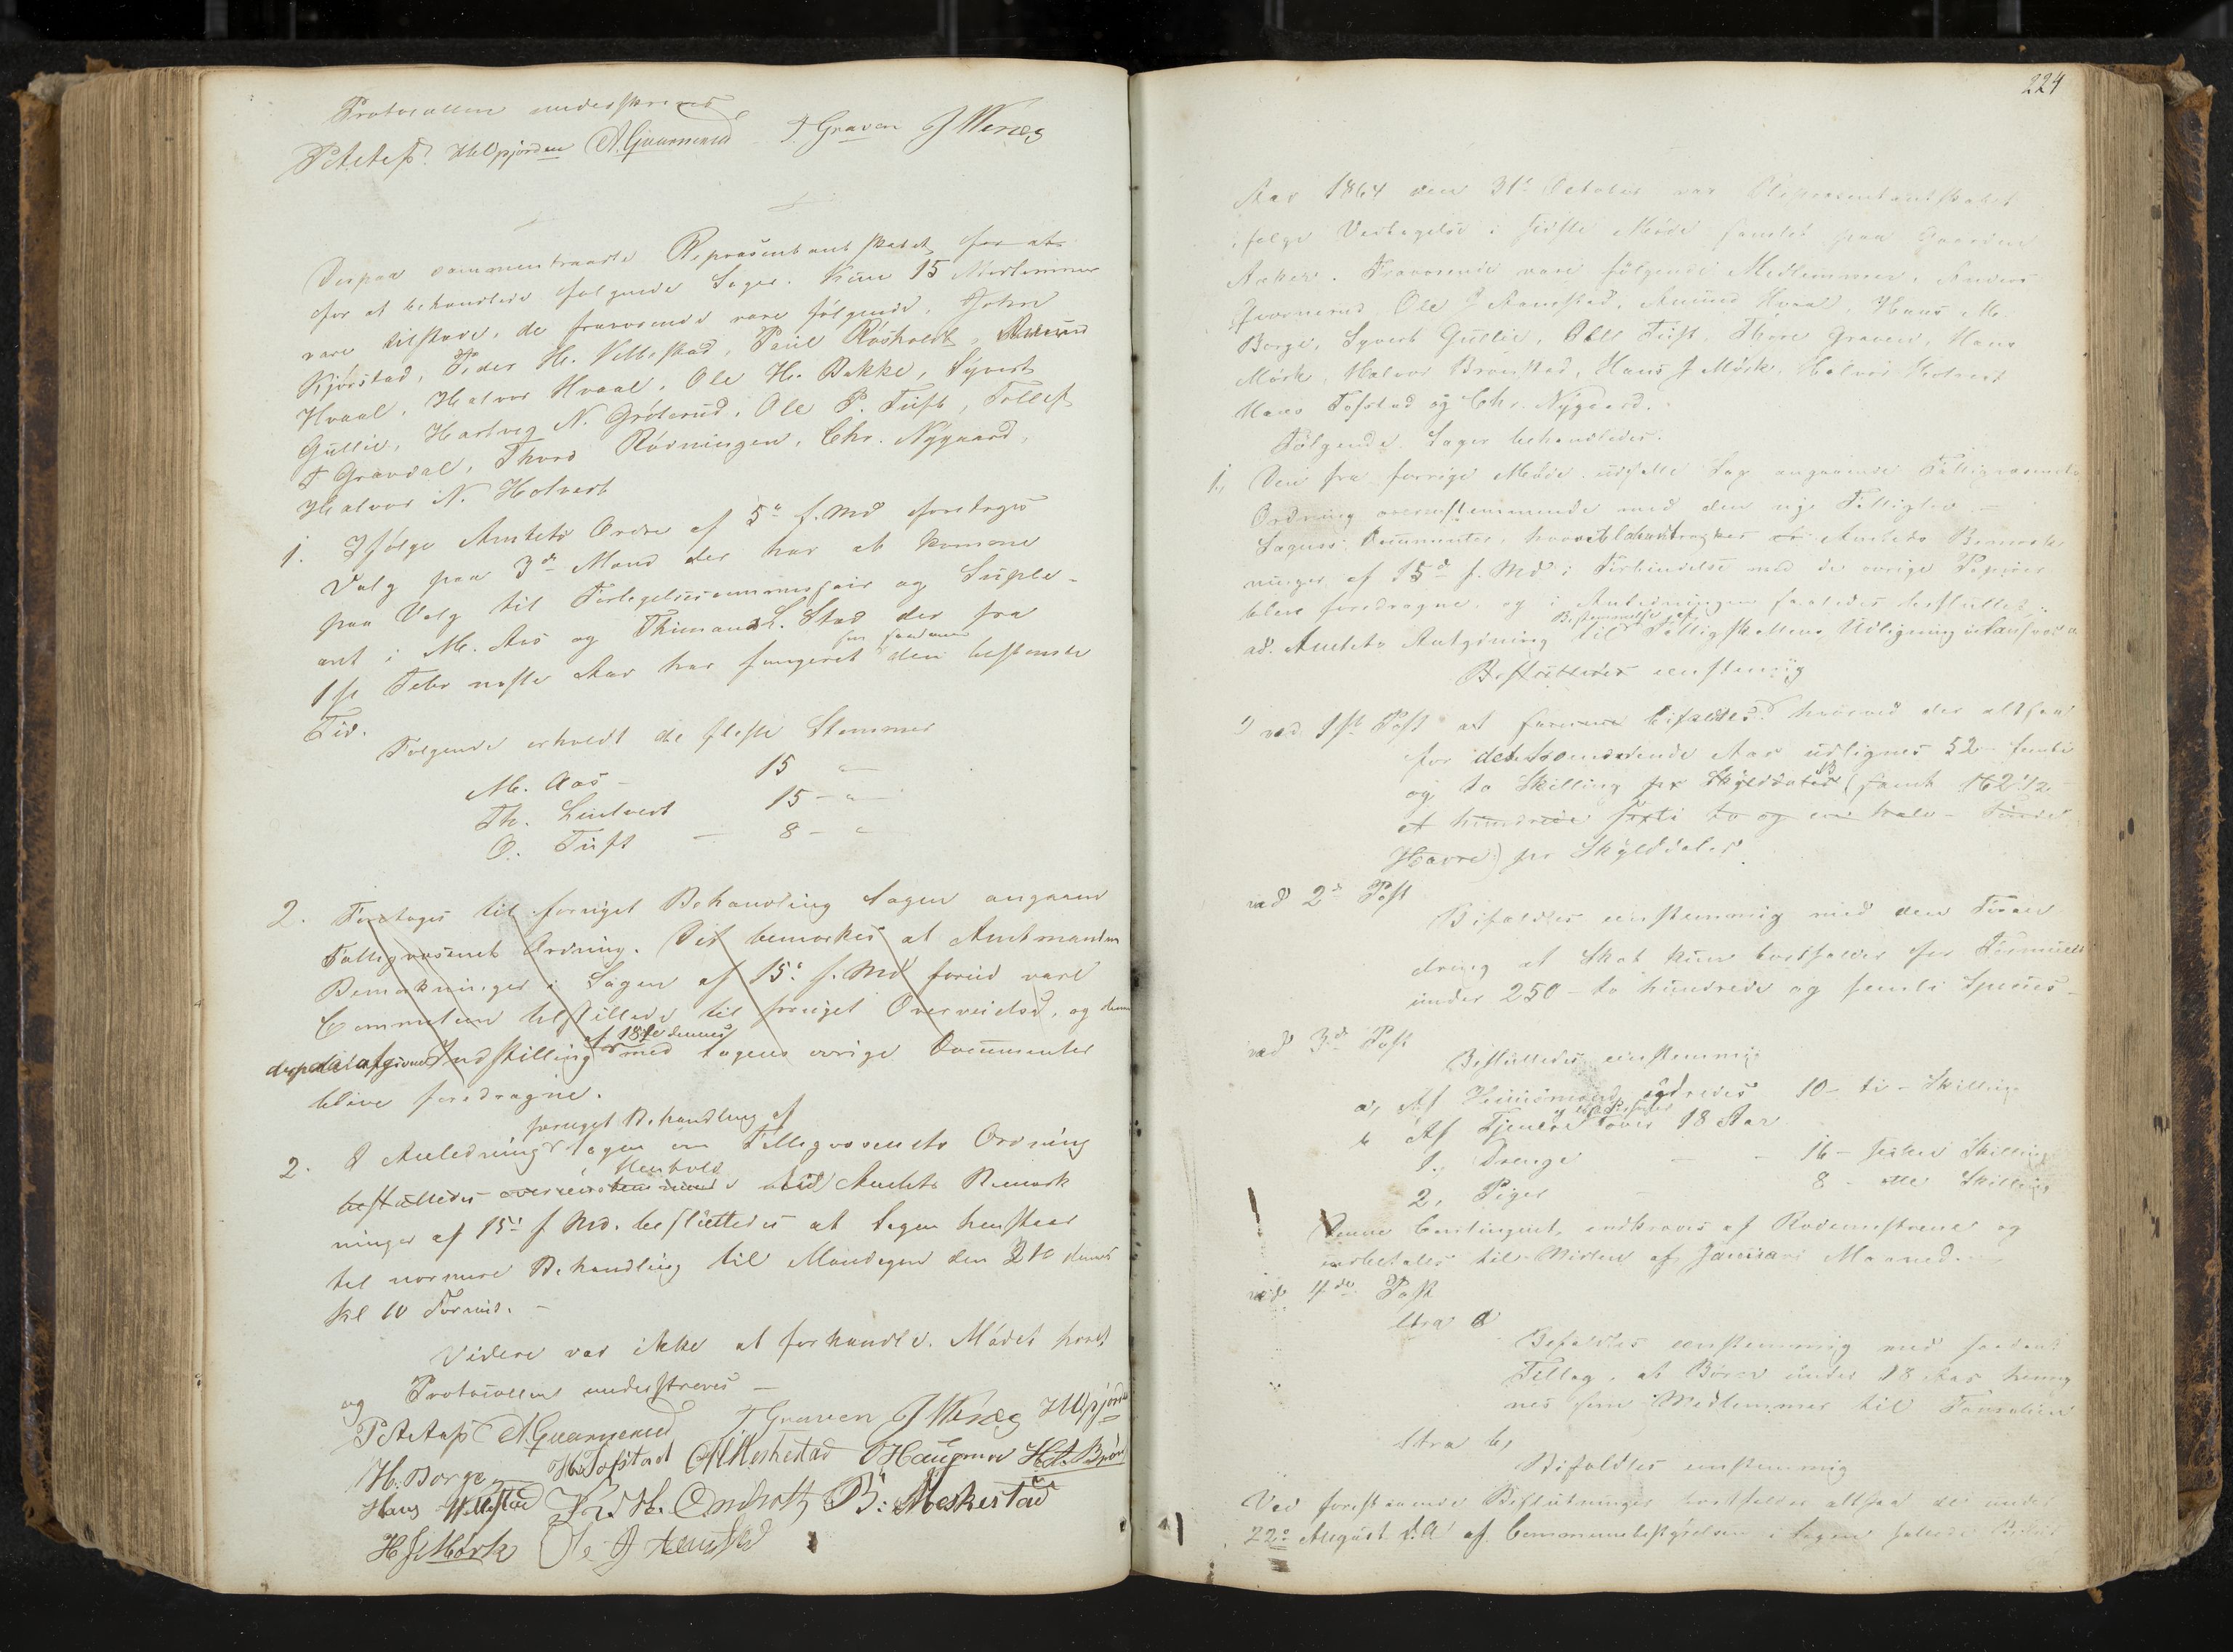 Protocollen underskreves
T Graven
Derpaa sammentraadte Repræsentantskabet for at
for at behandlede følgende Sager. Kun 15 Medlemmer
vare tilstede, de fraværende vare følgende, John
Kjørstad, Peder H. Villestad, Paul Røsholdt, Amund
Hvaal, Halvor Hvaal, Ole H. Bakke, Syvert
Gullie, Hartvig N. Grøterud, Ole P. Tuft, Tollef
T Gravdal, Thord Rødningen, Chr. Nygaard,
Halvor N. Holvert
1. Ifølge Amtets Ordre af 5te f. Md foretoges
Valg paa 3de Mand der har at komme
paa Valg til Forligelsescommissair og Suple-
ant i M. Aas og Thimans L. Stad der fra
1ste Febr næste Aar har fungeret som saadanne den bestemte
Tid.
Følgende erholdt de fleste Stemmer
M. Aas - 15 "
Th. Lintvert 15 - "
O. Tuft - 8 - "
2. Foretoges til forniget Behandling Sagen angaaend
Fattigvæsenets Ordning. Det bemærkes at Amtmanden
Bemærkninger i Sagen af 15de f. Md forud vare
Committeen tilstillede til forniget Overveielse, og dennes
derpaa afgivne Indstilling af 18de dennes med Sagens øvrige Documenter
bleve foredragne.
2. I Anledning forniget Behandling af Sagen om Fattigvæsenets Ordning
besluttedes overeensstemmende Henhold til Amtets Bemærk
ninger af 15de f. Md. besluttedes at Sagen henstaar
til nærmere Behandling til Mandagen den 31te dennes
Kl 10 Formid. -
Videre var ikke at forhandle. Mødet hævet
og Protocollen underskreves -
T. Graven
H. Borge H. Tofstad
Hans Villestad B: Meskestad
H J Mørk
224
Aar 1864 den 31te October var Repræsentantskabet
ifølge Vedtagelse i sidste Møde samlet paa Gaarden
Aaker. Fraværende vare følgende Medlemmer, Anders
Gvarnerud, Ole J Aamstad, Amund Hvaal, Hans M.
Borge, Syvert Gullie, Ole Tuft, Thore Graven, Hans
Mørk, Halvor Brønstad, Hans J Mørk, Halvor Holvert
Hans Tofstad og Chr. Nygaard.
Følgende Sager behandledes:
1, Den fra forrige Møde udsatte Sag angaaende Fattigvæsenets
Ordning overensstemmende med den nye Fattiglov -
Sagens Documenter, hvoriblandt Amtets Bemærk
ninger af 15de f. Md i Forbindelse med de øvrige Papirer
bleve foredragne, og i Anledningen saaledes besluttet:
ad. Amtets Antydning til Bestemmelse af Fattigskattens Udligning
Besluttedes eenstemmig
1) ved 1ste Post at bifaldes hvorved der altsaa
for det kommende Aar udlignes 52 - femti
og to Skilling pr Skylddaler (samt 162 1/2 -
et hundrede sexti to og en halv - Tønder
Havre) pr Skylddaler.
ved 2de Post
Bifaldtes eenstemmig med den Foran
dring at Skat kun bortfalder for Formuer
under 250 - to hundrede og femti Species -
ved 3de Post
Besluttedes eenstemmig
a, Af Huusmænd udredes 10 - ti - Skilling
b Af Tjenere over 18 Aar
1. Drenge - - 16 - sexten Skilling
2, Piger - 8 - otte Skilling
Denne Contingent indkræves af Rodemestrene og
indbetales til Midten af Januari Maaned. -
ved 4de Post
Litra a
Bifaldtes eenstemmig med saadant
Tillæg, at Børn under 18 Aar henreg
nes som Medlemmer til Familien
Litra b,
Bifaldtes eenstemmig
Ved forestaaende Beslutninger bortfalder altsaa de under
22de August d. A. af Communebestyrelsen i Sagen